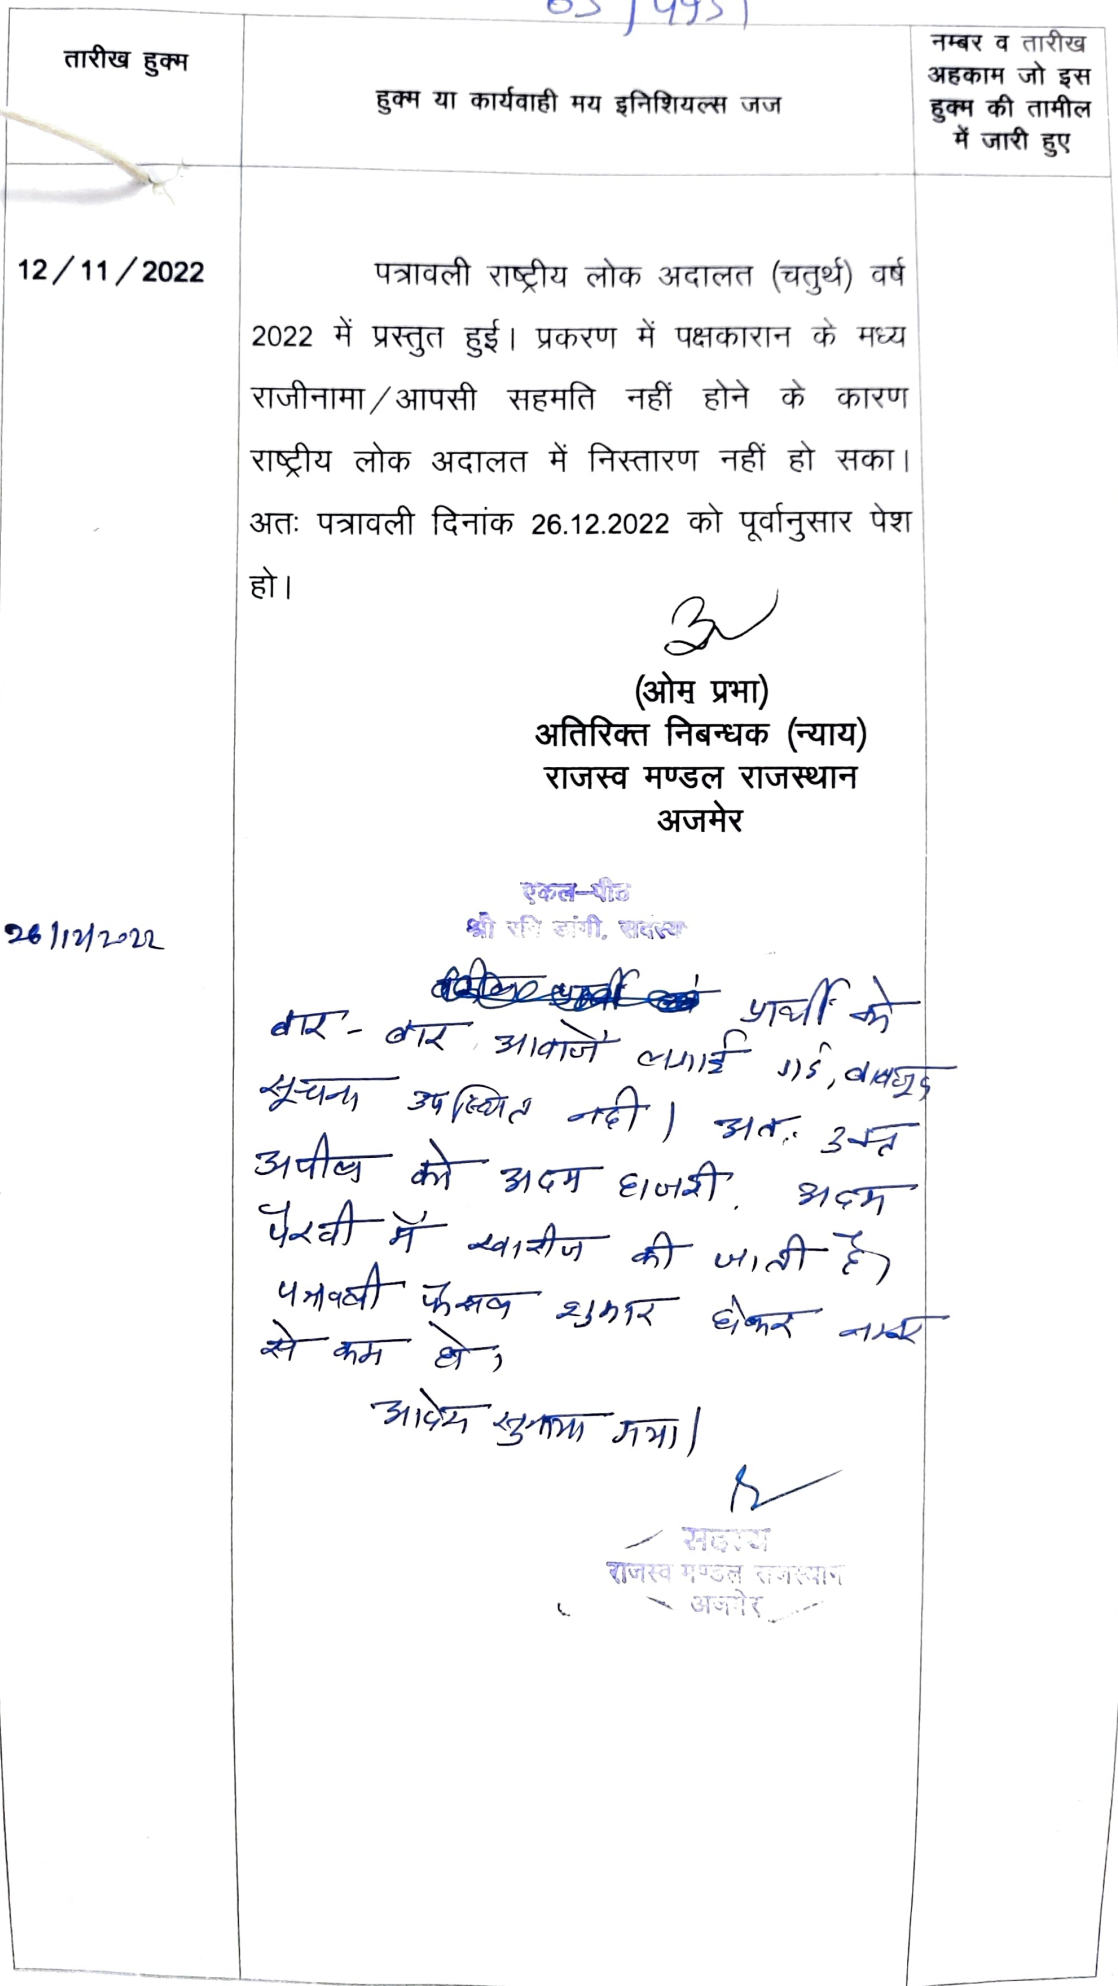 तारीख हुक्म
हुक्म या कार्यवाही मय इनिशियल्स जज
नम्बर व तारीख
अहकाम जो इस
हुक्म की तामील
में जारी हुए
12/11/2022
पत्रावली राष्ट्रीय लोक अदालत (चतुर्थ) वर्ष
2022 में प्रस्तुत हुई। प्रकरण में पक्षकारान के मध्य
राजीनामा/आपसी सहमति नहीं होने के कारण
राष्ट्रीय लोक अदालत में निस्तारण नहीं हो सका।
अतः पत्रावली दिनांक 26.12.2022 को पूर्वानुसार पेश
हो।
(ओम प्रभा)
अतिरिक्त निबन्धक (न्याय)
राजस्व मण्डल राजस्थान
अजमेर
एकल-पीठ
श्री रवि डांगी, सदस्य
26/12/2022
प्रार्थी को
बार-बार आवाजें लगाई गई, बावजूद
सूचना उपस्थित नहीं। अतः उक्त
अपील को अदम हाजरी. अदम
पैरवी में खारीज की जाती है।
पत्रावली फैसल शुमार होकर नम्बर
से कम हो।
आदेश सुनाया गया।
सदस्य
राजस्व मण्डल राजस्थान
अजमेर